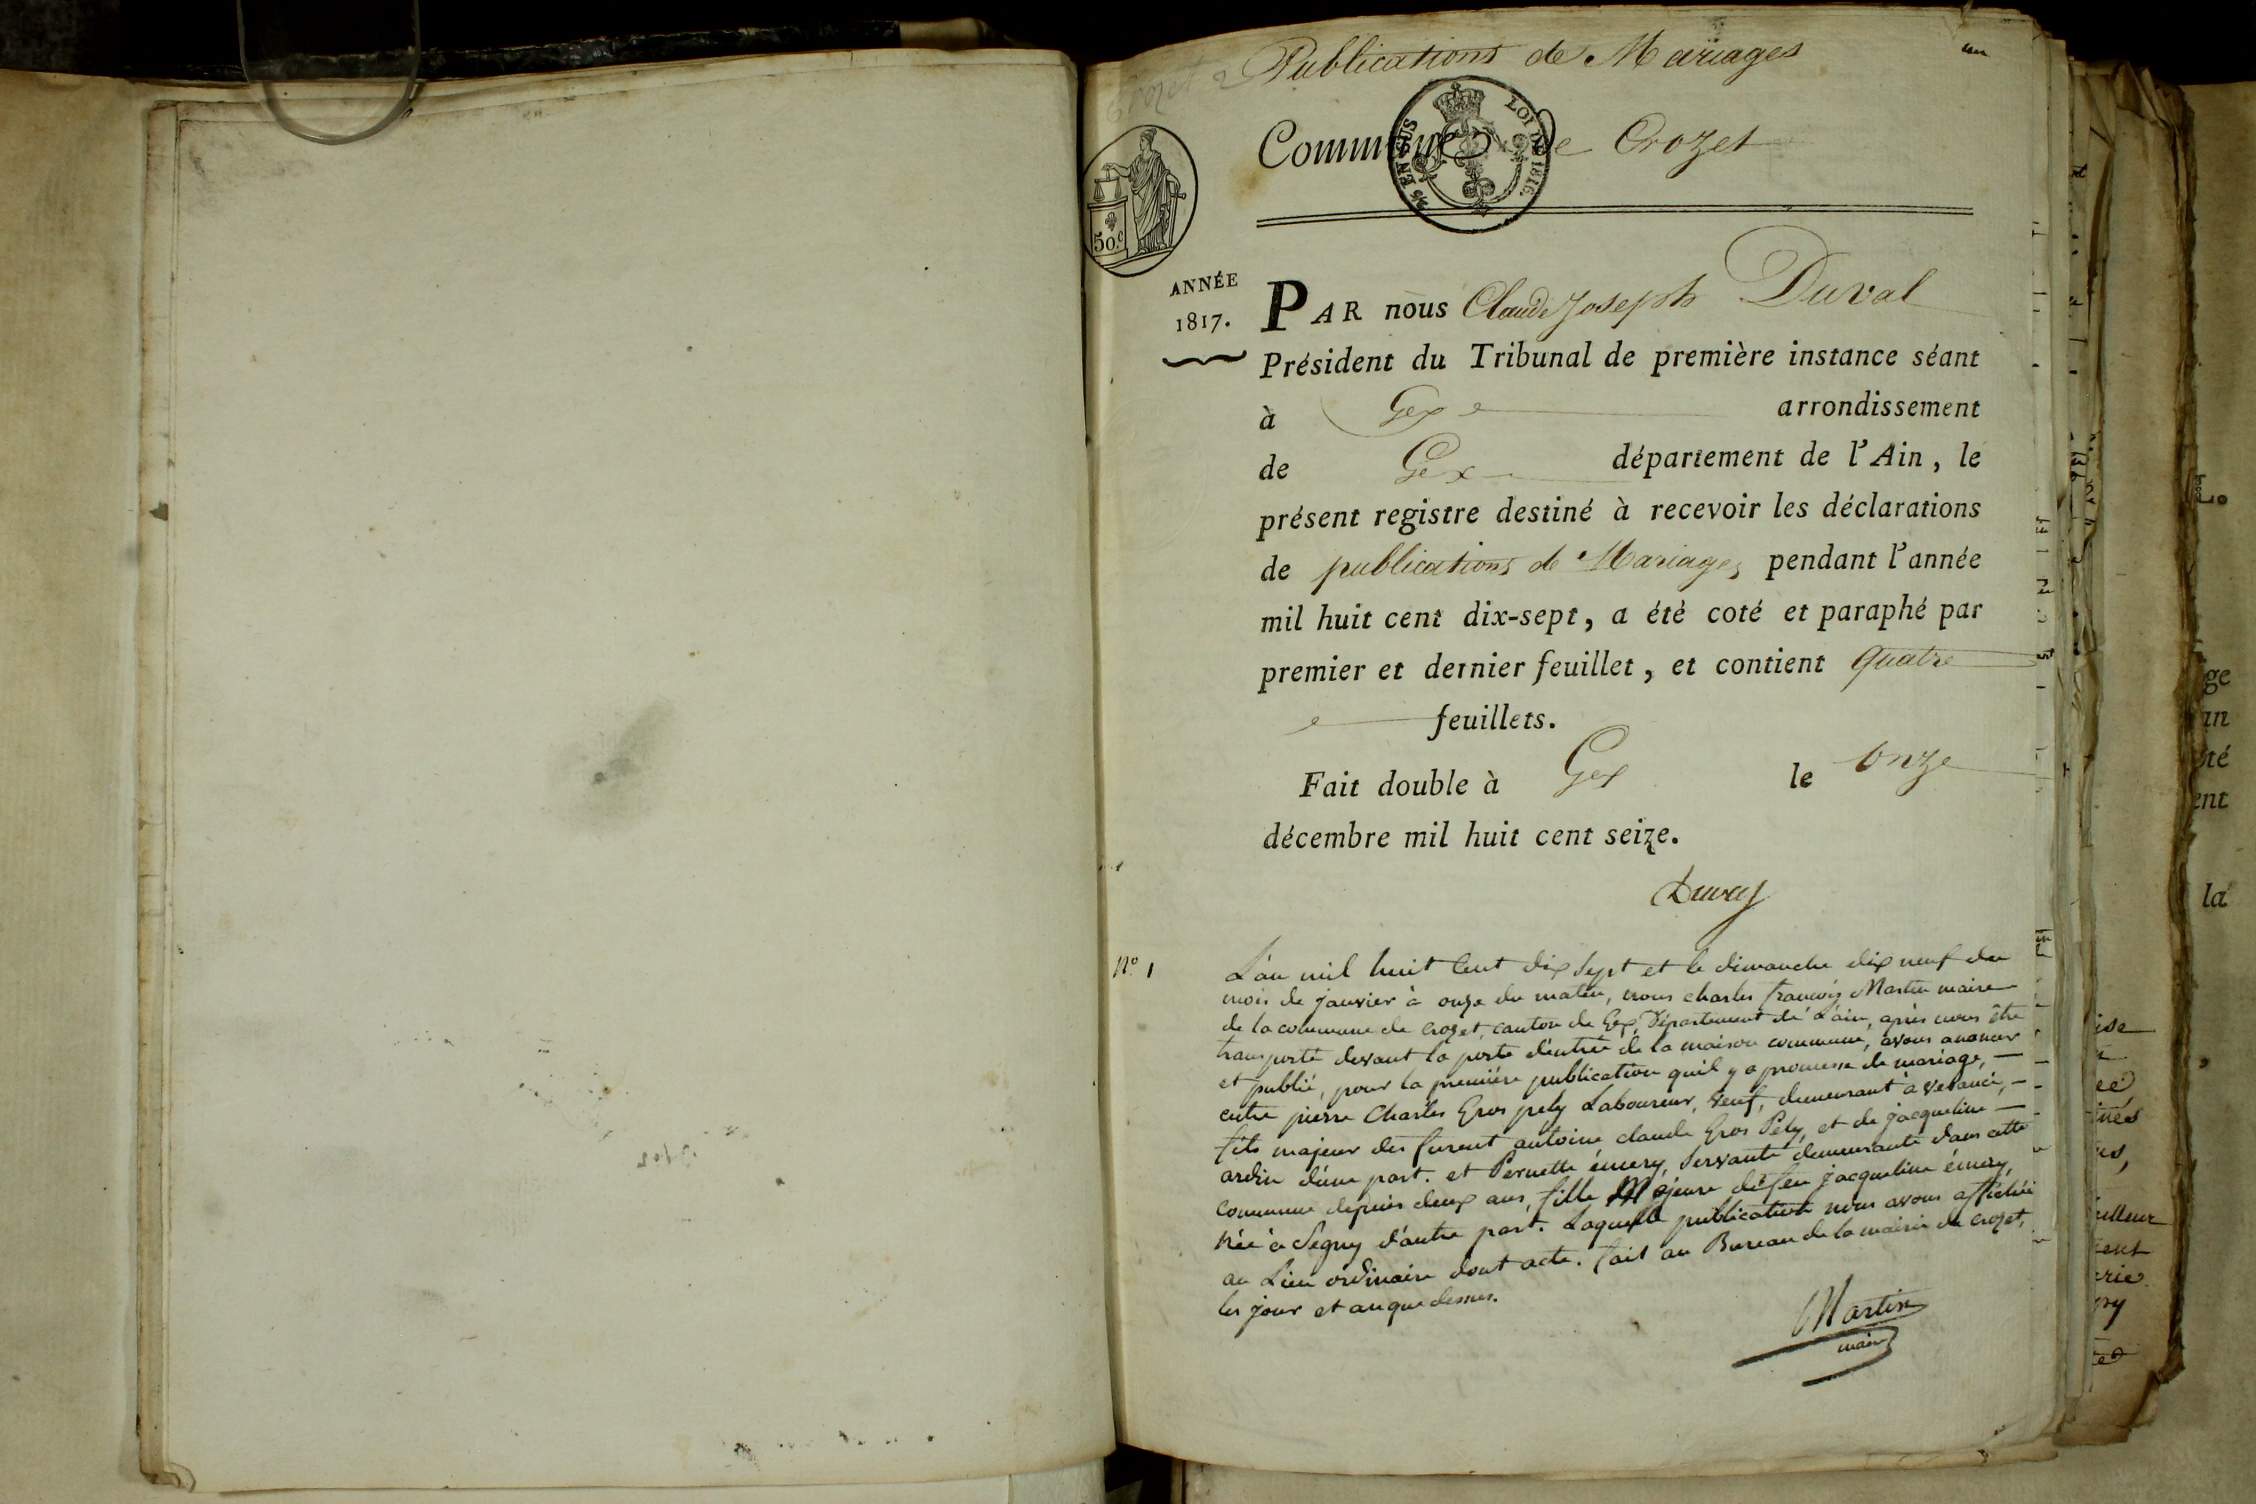 Publications de Mariages
un
Crozet
Commune de Crozet
¼ EN SUS
LOI DE 1816.
50.c
ANNÉE
1817.
PAR nous Claude Joseph Duval
Président du Tribunal de première instance séant
à Gex arrondissement
de Gex département de l'Ain, le
présent registre destiné à recevoir les déclarations
de publications de Mariages pendant l'année
mil huit cent dix-sept, a été coté et paraphé par
premier et dernier feuillet, et contient quatre
feuillets.
Fait double à Gex le onze
décembre mil huit cent seize.
Duval
N.° 1
L'an mil huit Cent dix Sept et le dimanche dix neuf du
mois de janvier à onze du matin, nous charles françois Martin maire
de la commune de Crozet, canton de Gex, Département de L'ain, après nous être
transporté devant la porte d'entrée de la maison commune, avons annoncer
et publié, pour la première publication quil y a promesse de mariage, —
entre pierre Charles Gros pely Laboureur, veuf, demeurant à verancé, —
fils majeur des furent antoine claude Gros Pély, et de jacqueline —
ardin d'une part. et Pernette émery, Servante demeurante dans cette
Commune depuis deux ans, fille Majeure de feu jacqueline émery,
née à Segny d'autre part. Laquelle publication nous avons affichée
au Lieu ordinaire dont acte. fait au Bureau de la mairie de Crozet,
les jour et an que dessus.
Martin
maire
ge
an
té
ent
la